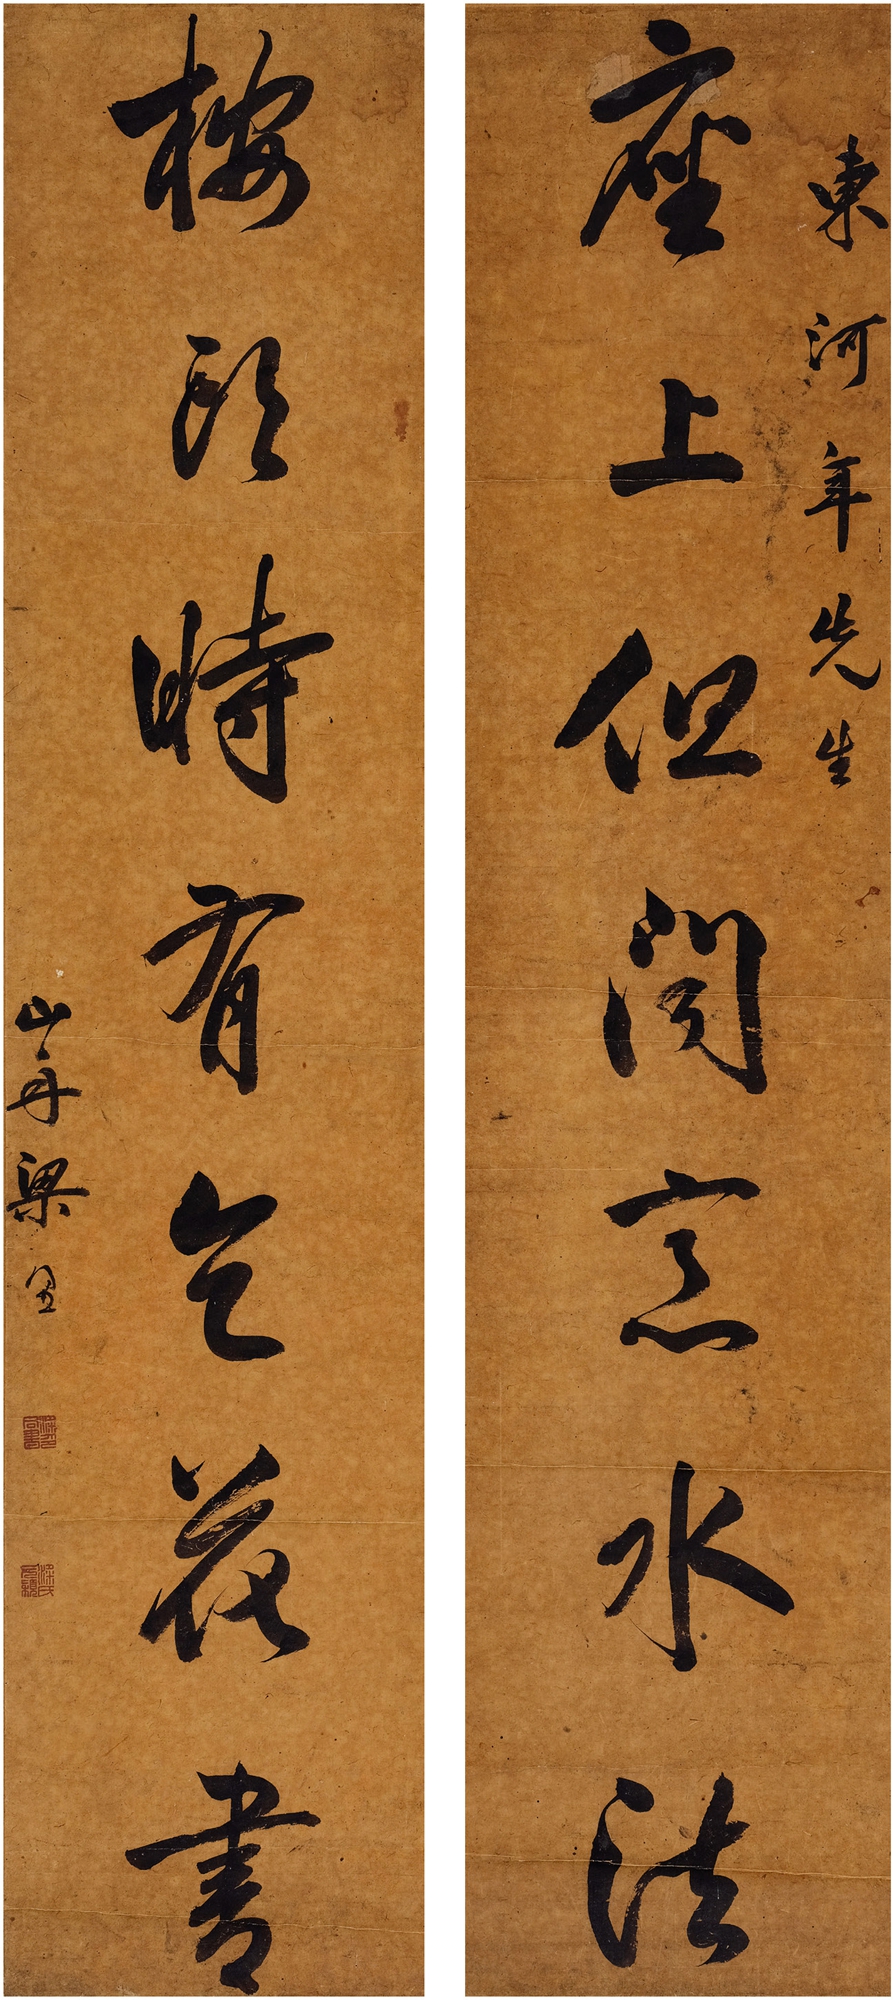 東河年先生
座上但聞烹水法
桉頭時有乞花書
山舟梁同書